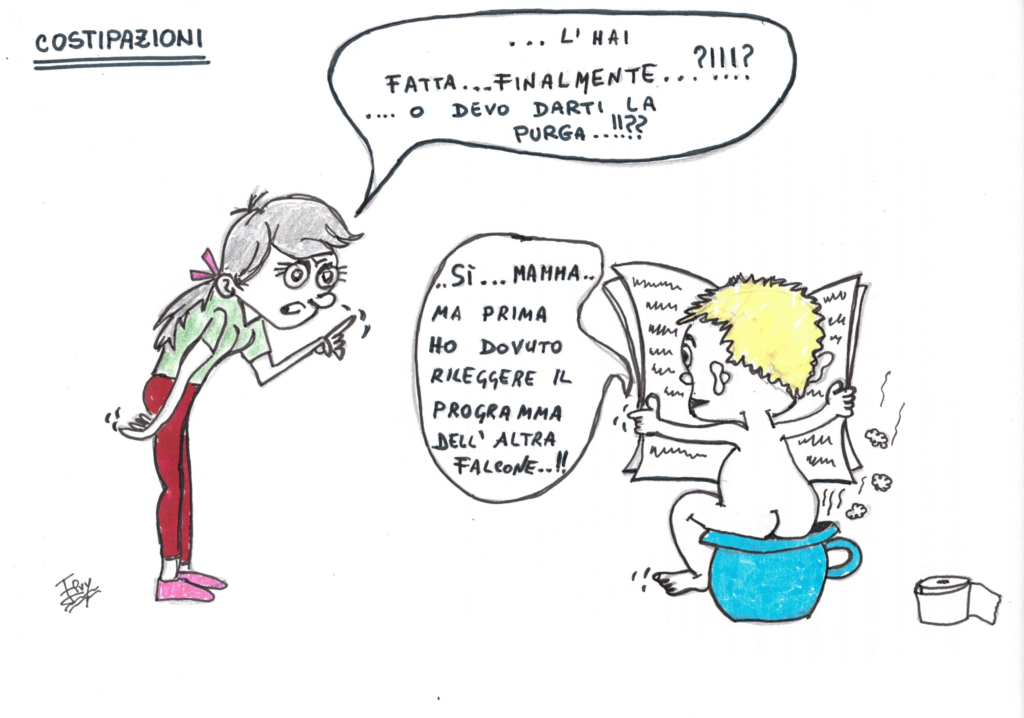 COSTIPAZIONI
... L'HAI
FATTA...FINALMENTE...?!!!?....
.... O DEVO DARTI LA
PURGA...!!??
..SÌ... MAMMA..
MA PRIMA
HO DOVUTO
RILEGGERE IL
PROGRAMMA
DELL'ALTRA
FALCONE..!!